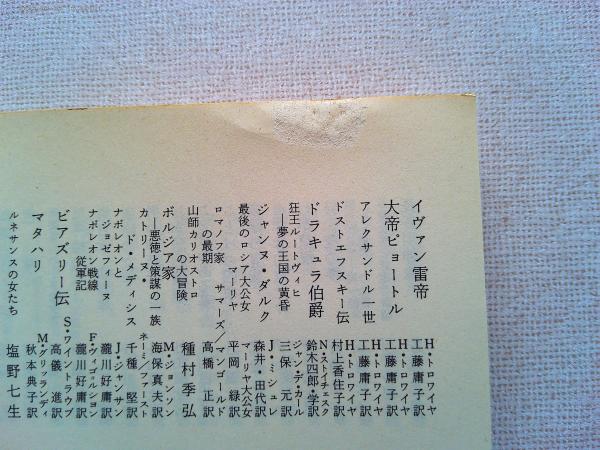 イヴァン雷帝
H・トロワイヤ
工藤庸子訳
大帝ピョートル
H・トロワイヤ
工藤庸子訳
アレクサンドル一世
H・トロワイヤ
工藤庸子訳
ドストエフスキー伝
H・トロワイヤ
村上香住子訳
ドラキュラ伯爵
N・ストイチェスク
鈴木四郎・学訳
狂王ルートヴィヒ
―夢の王国の黄昏
ジャン・デ・カール
三保 元訳
ジャンヌ・ダルク
J・ミシュレ
森井・田代訳
最後のロシア大公女
マーリヤ
マーリヤ大公女
平岡 緑訳
ロマノフ家
の最期
サマーズ/マンゴールド
高橋 正訳
山師カリオストロ
の大冒険
種村季弘
ボルジア家
―悪徳と策謀の一族
M・ジョンソン
海保真夫訳
カトリーヌ・
ド・メディシス
ネーミ/ファースト
千種 堅訳
ナポレオンと
ジョゼフィーヌ
J・ジャンサン
瀧川好庸訳
ナポレオン戦線
従軍記
F・ヴィゴ=ルション
瀧川好庸訳
ビアズリー伝
S・ワイントラウブ
高儀 進訳
マタハリ
M・グリュランディ
秋本典子訳
ルネサンスの女たち
塩野七生